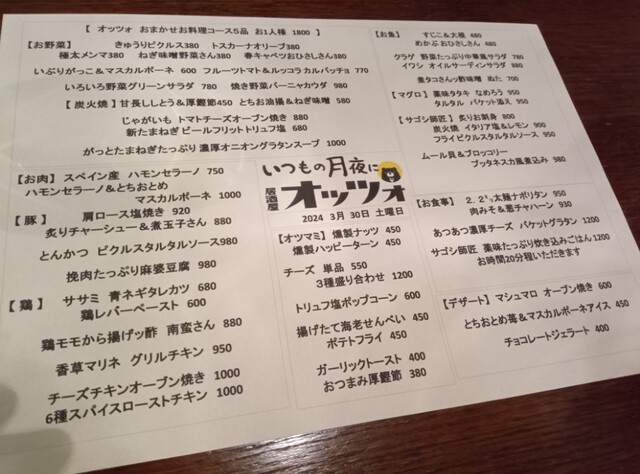 【 オッツォ おまかせお料理コース5品 お1人様 1800 】
【お野菜】 きゅうりピクルス380 トスカーナオリーブ380
極太メンマ380 ねぎ味噌野菜さん380 春キャベツおひさしさん380
いぶりがっこ&マスカルポーネ 600 フルーツトマト&ルッコラ カルパッチョ 770
いろいろ野菜グリーンサラダ 780 焼き野菜バーニャカウダ 980
【 炭火焼 】甘長ししとう&厚鰹節450 とちお油揚&ねぎ味噌 580
じゃがいも トマトチーズオーブン焼き 880
新たまねぎ ビールフリットトリュフ塩 680
がっとたまねぎたっぷり 濃厚オニオングラタンスープ 1000
【お肉】 スペイン産 ハモンセラーノ 750
ハモンセラーノ&とちおとめ
マスカルポーネ 1000
【 豚 】 肩ロース塩焼き 920
炙りチャーシュー&煮玉子さん 880
とんかつ ピクルスタルタルソース980
挽肉たっぷり麻婆豆腐 980
【 鶏 】 ササミ 青ネギタレカツ 680
鶏レバーペースト 600
鶏モモから揚げッ酢 南蛮さん 880
香草マリネ グリルチキン 950
チーズチキンオーブン焼き 1000
6種スパイスローストチキン 1000
いつもの月夜に
居酒屋 オッツォ
2024 3月 30日 土曜日
【オツマミ】燻製ナッツ 450
燻製ハッピーターン 450
チーズ 単品 550
3種盛り合わせ 1200
トリュフ塩ポップコーン 600
揚げたて海老せんべい 450
ポテトフライ 450
ガーリックトースト 400
おつまみ厚鰹節 380
【お魚】 すじこ&大根 480
めかぶ おひさしさん 480
クラゲ 野菜たっぷり中華風サラダ 780
イワシ オイルサーディンサラダ 880
煮タコさんッ酢味噌 ぬた 700
【マグロ】薬味タタキ なめろう 950
タルタル バケット添え 950
【サゴシ師匠】 炙りお刺身 800
炭火焼 イタリア塩&レモン 900
フライピクルスタルタルソース 950
ムール貝&ブロッコリー
プッタネスカ風煮込み 980
【お食事】 2.2㍉太麺ナポリタン 950
肉みそ&葱チャハーン 930
あつあつ濃厚チーズ バケットグラタン 1200
サゴシ師匠 薬味たっぷり炊き込みごはん1200
お時間20分程いただきます
【デザート】マシュマロ オーブン焼き 600
とちおとめ苺&マスカルポーネアイス 450
チョコレートジェラート 400